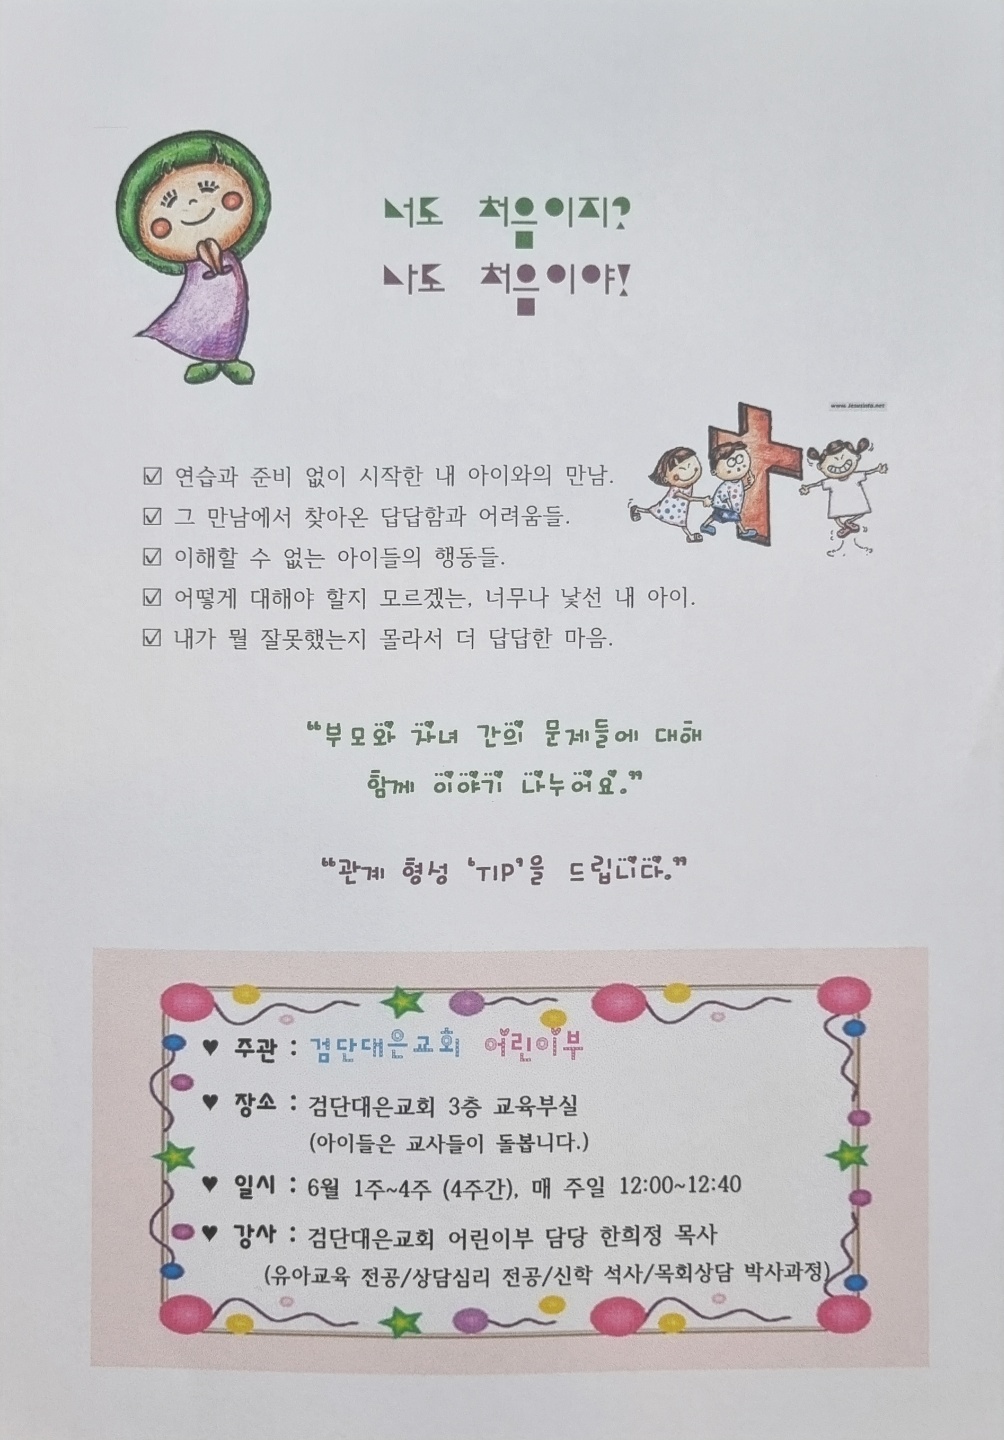 너도 처음이지?
나도 처음이야!
www.Jesusinfo.net
☑ 연습과 준비 없이 시작한 내 아이와의 만남.
☑ 그 만남에서 찾아온 답답함과 어려움들.
☑ 이해할 수 없는 아이들의 행동들.
☑ 어떻게 대해야 할지 모르겠는, 너무나 낯선 내 아이.
☑ 내가 뭘 잘못했는지 몰라서 더 답답한 마음.
“부모와 자녀 간의 문제들에 대해
함께 이야기 나누어요.”
“관계 형성 ‘TIP’을 드립니다.”
♥ 주관 : 검단대은교회 어린이부
♥ 장소 : 검단대은교회 3층 교육부실
(아이들은 교사들이 돌봅니다.)
♥ 일시 : 6월 1주~4주 (4주간), 매 주일 12:00~12:40
♥ 강사 : 검단대은교회 어린이부 담당 한희정 목사
(유아교육 전공/상담심리 전공/신학 석사/목회상담 박사과정)